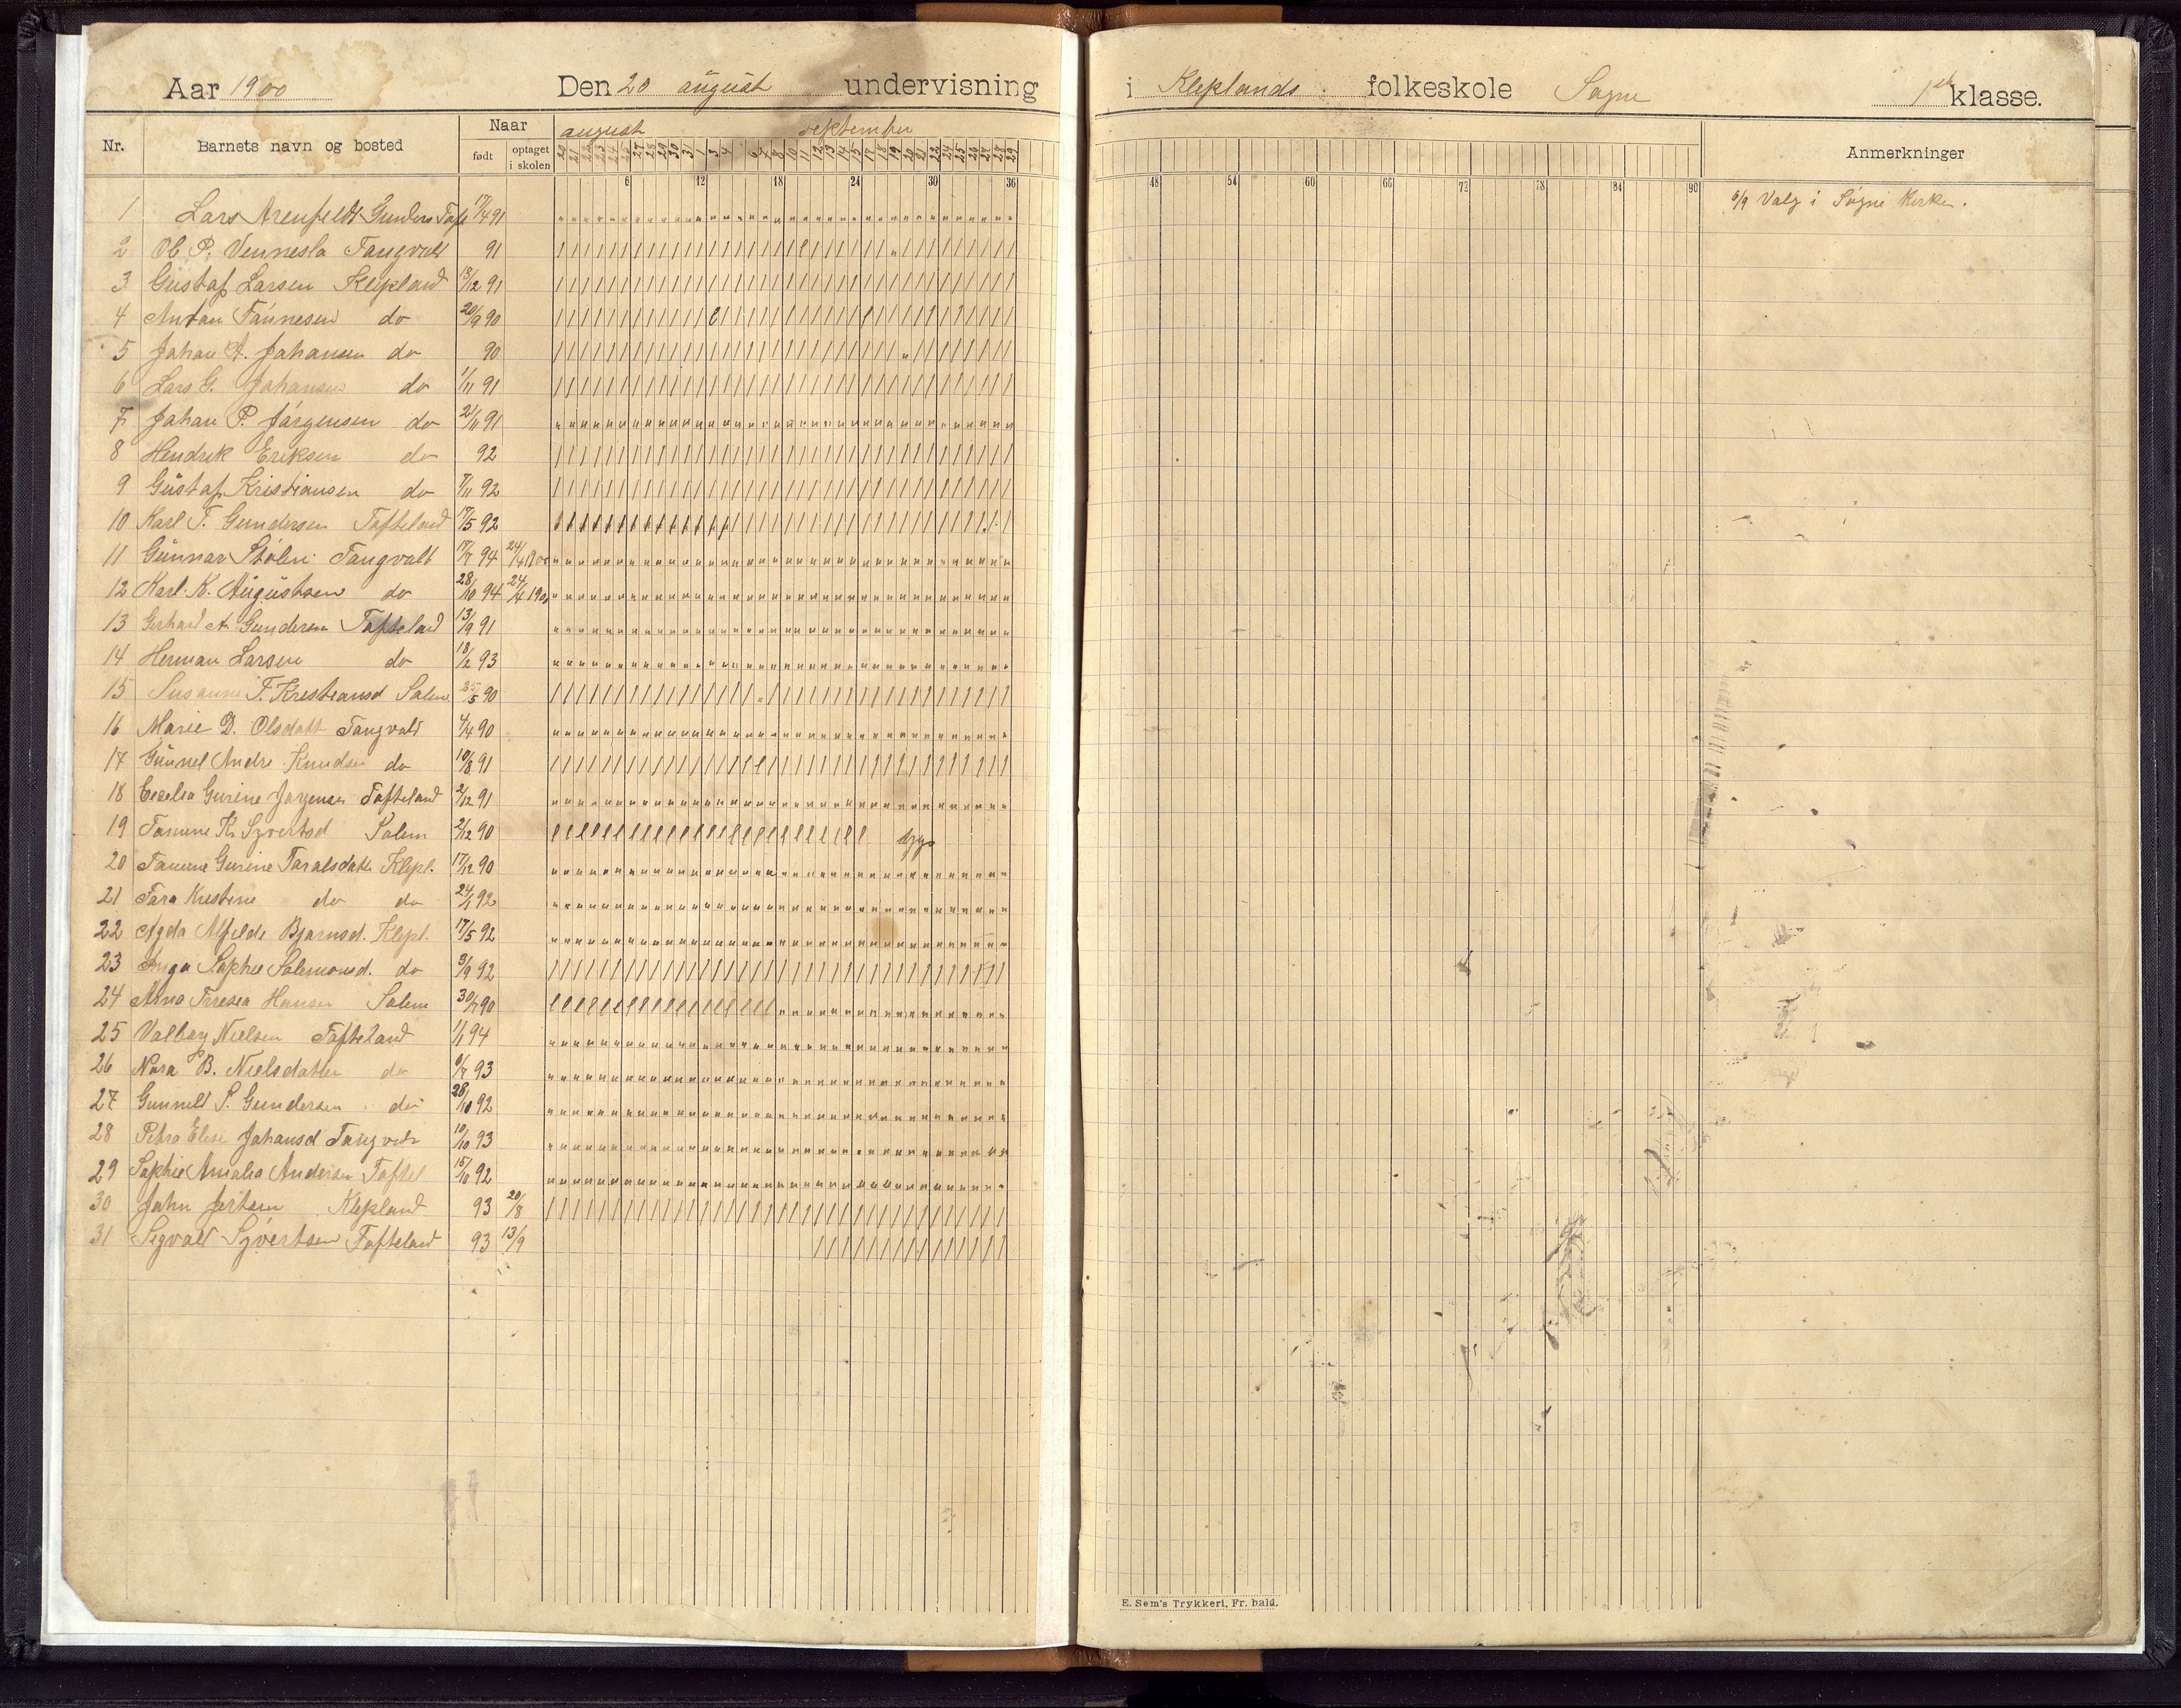 Aar 1900 Den 20 august undervisning i Kleplands folkeskole Søgne 1ste klasse.
Nr. Barnets navn og bosted Naar født optaget i skolen august september Anmerkninger
20 21 22 23 24 25 27 28 29 30 31 1 3 4 6 7 8 10 11 12 13 14 15 17 18 19 20 21 22 24 25 26 27 28 29
6 12 18 24 30 36 48 54 60 66 72 78 84 90
6/9 Valg i Søgne Kirke.
1 Lars Arenfeldt Gunders Tofs 17/4 91
2 Ol P. Vennesla Tangvall 91
3 Gustaf Larsen Klepland 13/12 91
4 Antan Tånnesen do 20/9 90
5 Johan A. Johansen do 90
6 Lars G. Johansen do 1/11 91
7 Johan P. Jørgensen do 21/11 91
8 Hendrik Eriksen do 92
9 Gustaf Kristiansen do 7/11 92
10 Karl T. Gundersen Tofteland 17/5 92
11 Gunnar Stølen Tangvall 18/7 94 24/4 1900
12 Karl K. Augustsen do 28/10 94 24/4 1900
13 Gerhard A Gundersen Tofteland 13/9 91
14 Herman Larsen do 18/2 93
15 Susanne T. Kristiansd Salem 25/5 90
16 Marie D. Olsdatt Tangvall 4/4 90
17 Gunnel Andre Knudsen do 10/8 91
18 Cecelia Gurine Jørgensen Tofteland 2/12 91
19 Tomine K. Syvertsd Salem 2/12 90 syg
20 Tomine Gurine Taralsdatter Klepl. 17/12 90
21 Tara Kristine do do 24/1 92
22 Agda Alfilde Bjørnsd. Klepl. 17/5 92
23 Inga Sophie Salomonsd. do 3/9 92
24 Anna Tresea Hansen Salem 30/7 90
25 Valborg Nielsen Tofteland 1/1 94
26 Nora B. Nielsdatter do 6/7 93
27 Gunnell S. Gundersen do 28/10 92
28 Petra Elise Johansd Tangvall 10/10 93
29 Sophie Amalia Andersen Toftel 15/10 92
30 John Jertsen Klepland 93 20/8
31 Sigvald Syvertsen Tofteland 93 13/9
E. Sem's Trykkeri, Fr. hald.